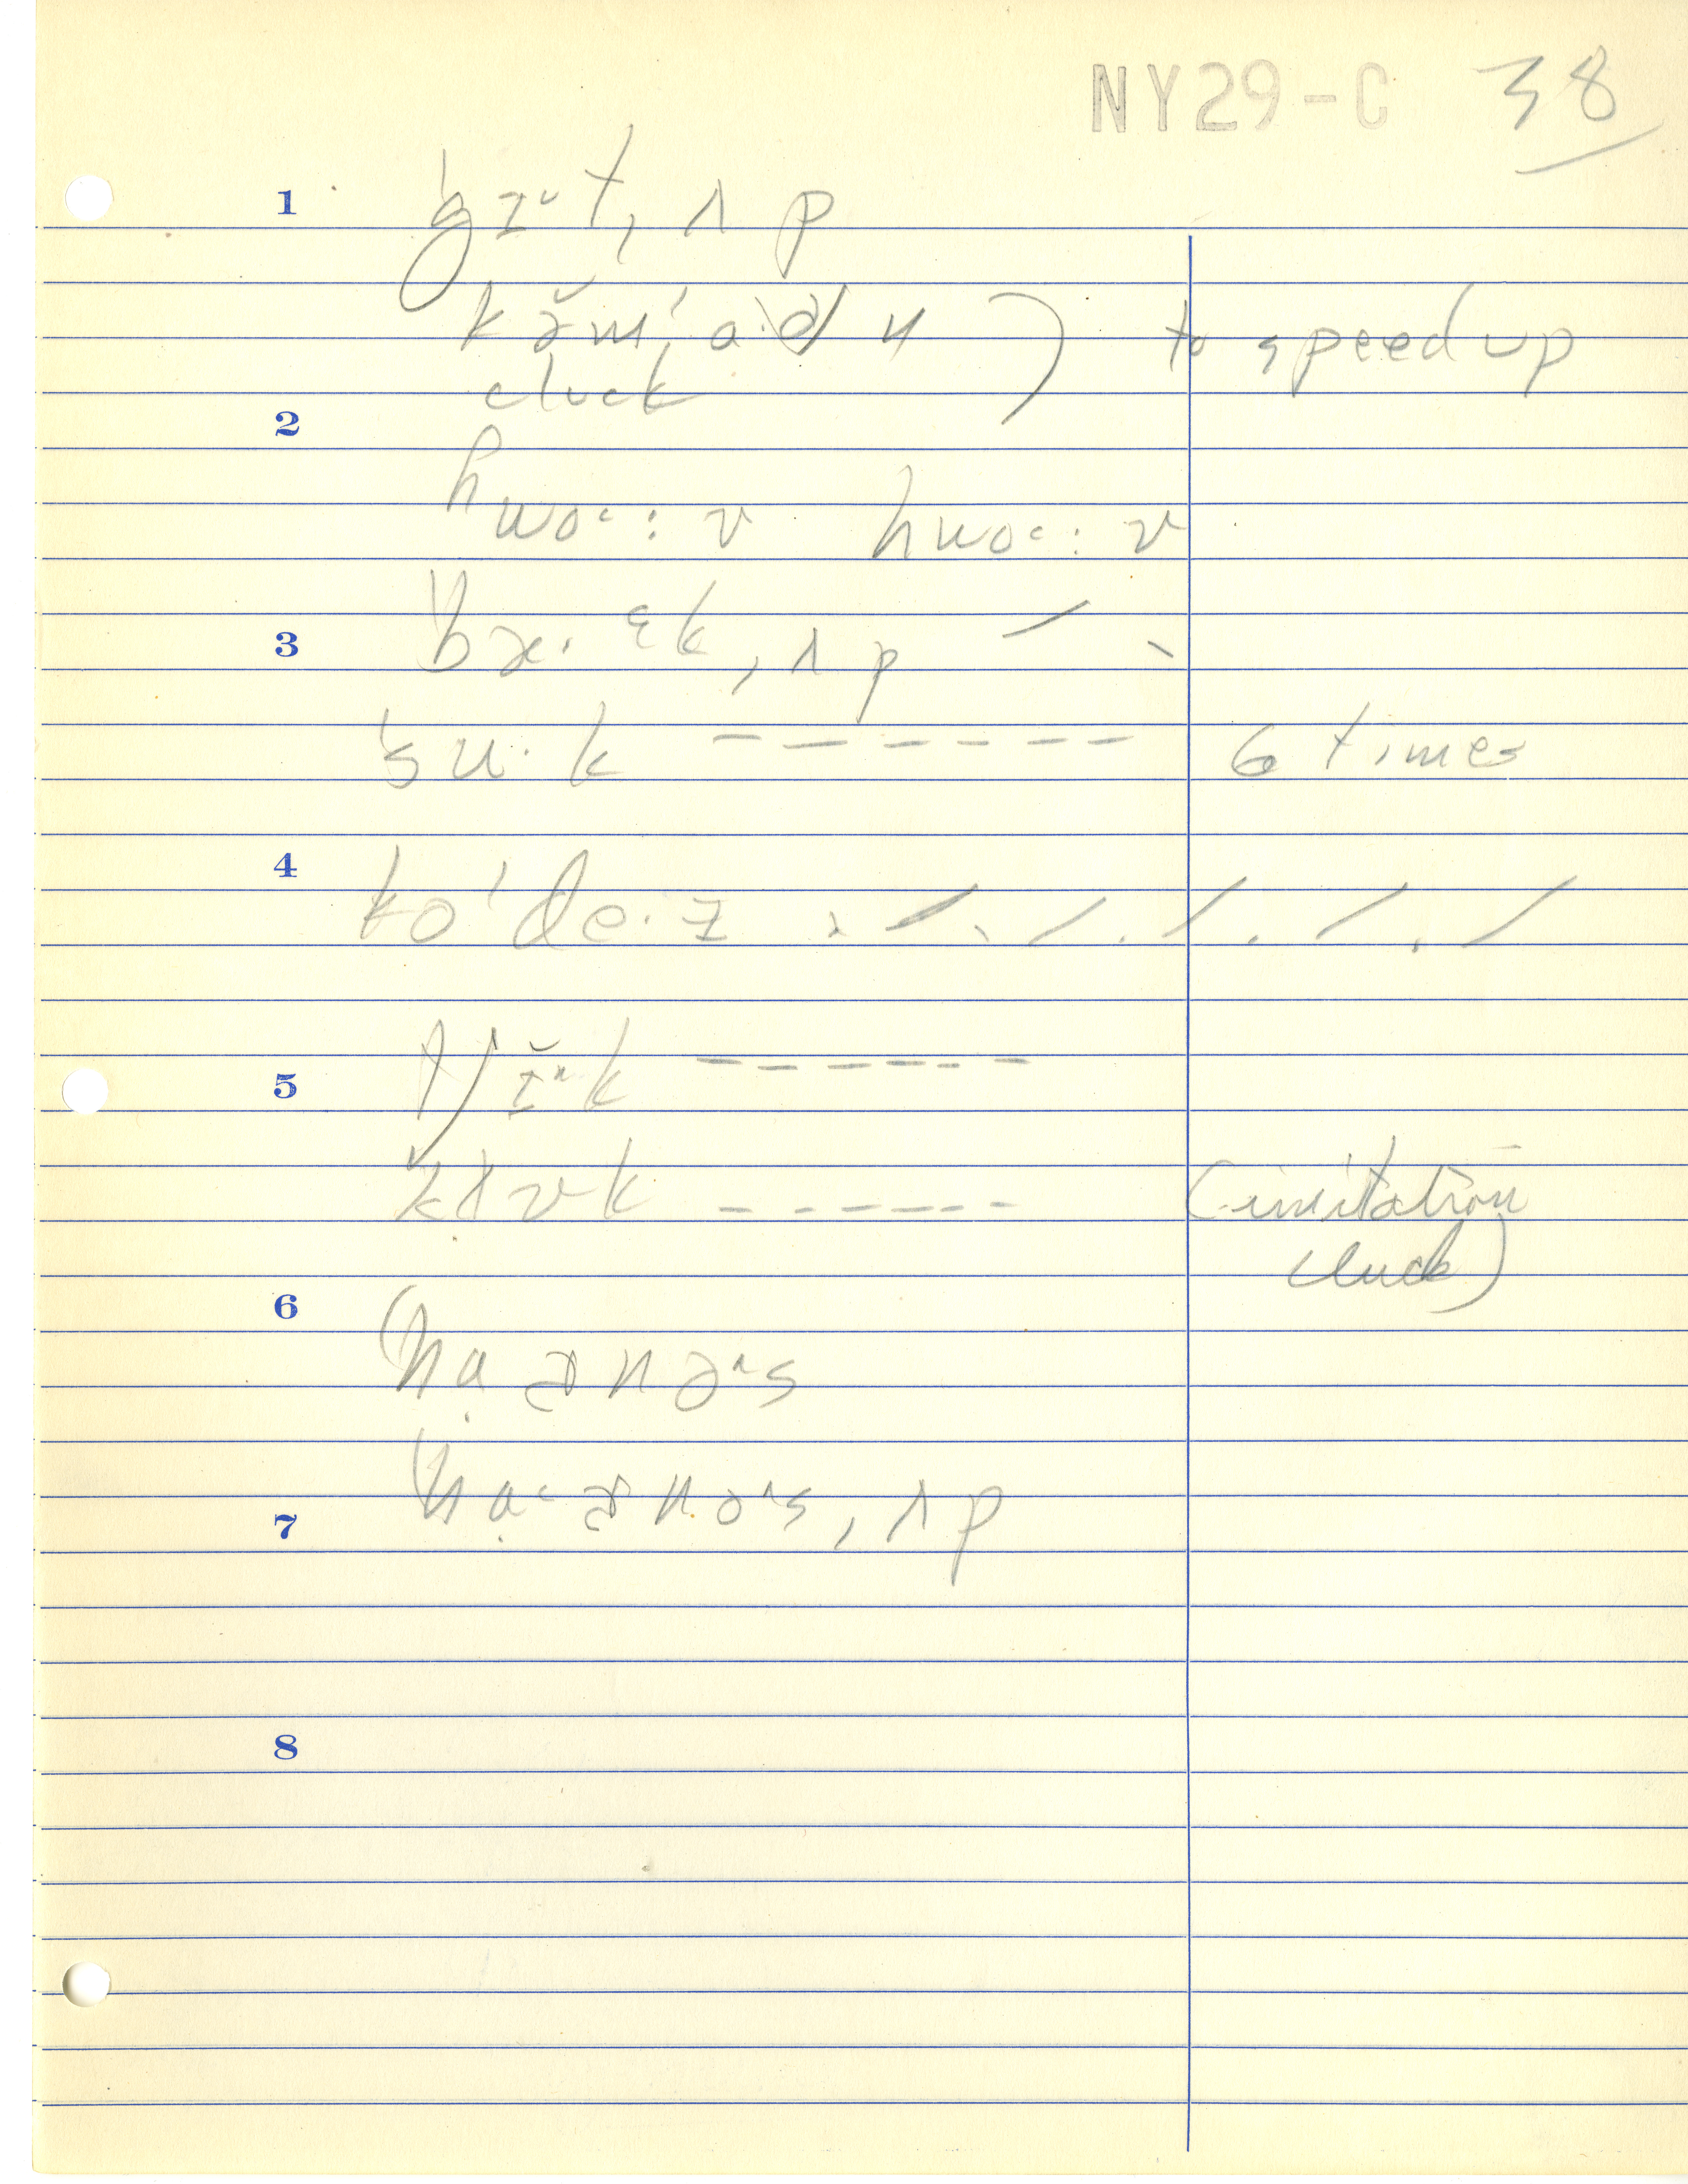 NY29-C 38
1 gɪᵕt, ʌp
kə̆m'a·ən ) to speed up
cluck
2
hwoᵋ: v hwoᵋ: v
3 bæ·ᵋk, ʌp ⟋ ⟍
su·k – – – – – – 6 times
4 ko'de·ɪ
5 tʃɪ̆ᶺk – – – – – –
klʊk – – – – – – (imitation
cluck)
6
hạɚnəᶺs
7 hạᵋɚnəᶺs, ʌp
8